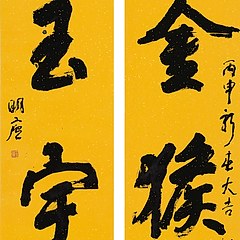 金猴
丙申新春大吉
玉宇
明廬